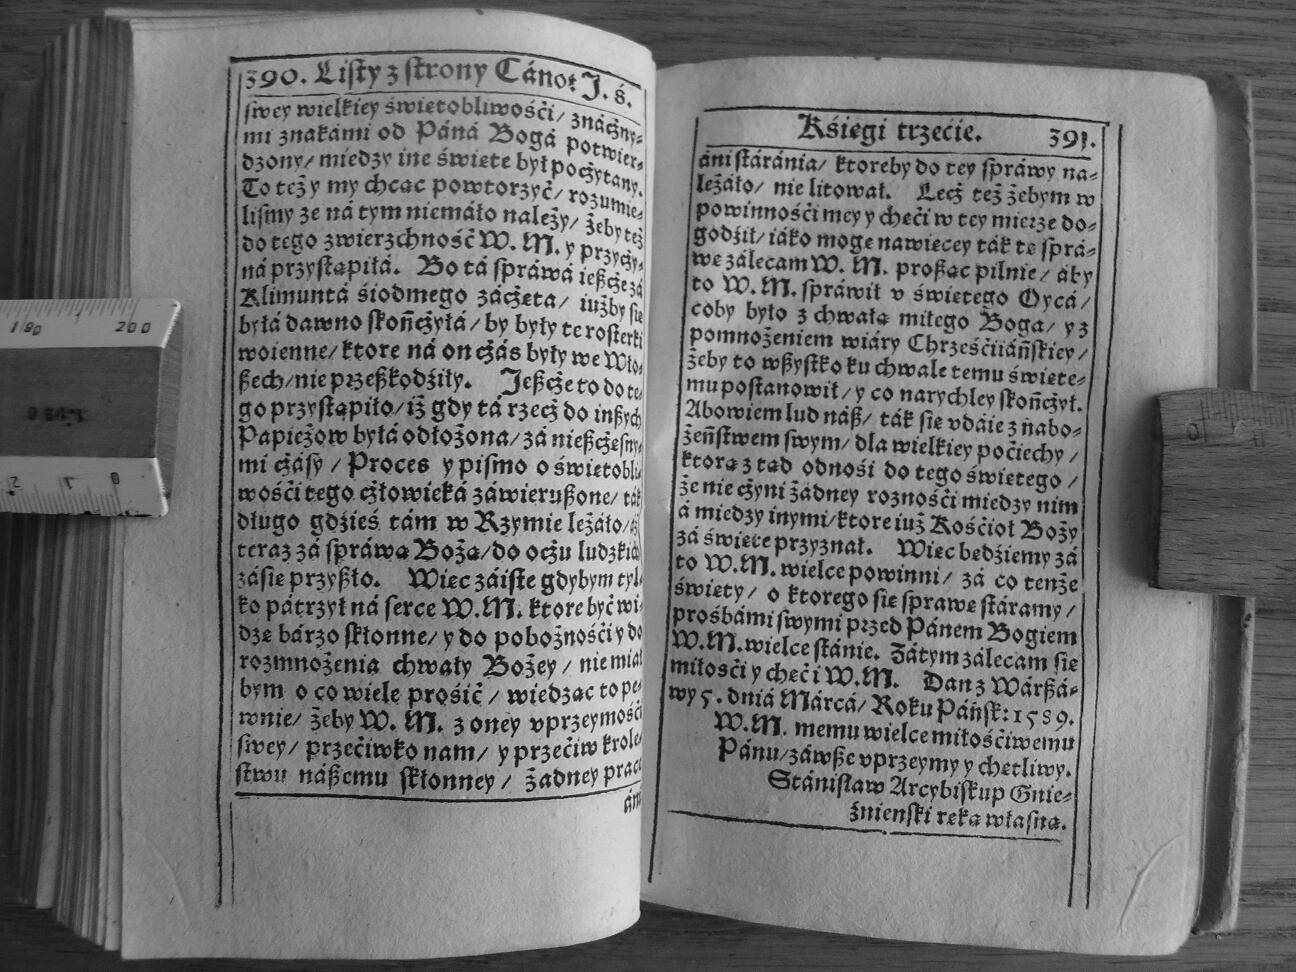 390. Listy z strony Cánoz J. ś.
swey wielkiey świetobliwośći / znácżny-
mi znakámi od Páná Bogá potwier-
dzony / miedzy ine świete był pocżytany.
To też y my chcac powtorzyć / rozumie-
lismy że ná tym niemáło należy / żeby też
do tego zwierzchność W. M. y przycży-
ná przystąpiłá. Bo tá spráwá ieszcże zá
Klimuntá śiodmego zácżeta / iużby sie
byłá dawno skończyłá / by były te rosterki
woienne / ktore ná on cżás były we Wło-
szech / nie przeszkodźiły. Jeszcże to do te-
go przystąpiło / iż gdy tá rzecż do inszych
Papieżow byłá odłożona / zá nieszcżesny-
mi cżásy / Proces y pismo o świetobli-
wośći tego cżłowieká záwieruszone / ták
długo gdźieś tám w Rzymie leżáło / iż
teraz zá spráwą Bożą / do ocżu ludzkich
zásie przyszło. Wiec záiste gdybym tyl-
ko pátrzył ná serce W. M. ktore być wi-
dze bárzo skłonne / y do pobożnośći y do
rozmnożenia chwały Bożey / nie miał
bym o co wiele prośić / wiedząc to pe-
wnie / żeby W. M. z oney vprzeymośći
swey / przećiwko nam / y przećiw krole-
stwu nászemu skłonney / żadney prace
áni
Kśiegi trzećie. 391.
áni stáránia / ktoreby do tey spráwy na-
leżáło / nie litował. Lecż też żebym w
powinnośći mey y cheći w tey mierze do-
godźił / iáko moge nawiecey ták te sprá-
we zálecam W. M. prosząc pilnie / áby
to W. M. spráwił v świetego Oycá /
coby było z chwałą miłego Boga / y z
pomnożeniem wiáry Chrześćiiáńskiey /
żeby to wszystko ku chwale temu świete-
mu postanowił / y co narychley skończył.
Abowiem lud nász / ták sie vdáie z nabo-
żeństwem swym / dla wielkiey poćiechy /
ktorą z tąd odnośi do tego świetego /
że nie cżyni żadney roznośći miedzy nim
á miedzy inymi / ktore iuż Kośćioł Boży
zá świete przyznał. Wiec bedźiemy zá
to W. M. wielce powinni / zá co tenże
świety / o ktorego sie sprawe stáramy /
prośbámi swymi przed Pánem Bogiem
W. M. wielce stánie. Zátym zálecam sie
miłosći y cheći W. M. Dan z Wárszá-
wy 5. dniá Márcá / Roku Páńsk: 1589.
W. M. memu wielce miłośćiwemu
Pánu / záwsze vprzeymy y chetliwy.
Stánisław Arcybiskup Gnie-
źnienski reka własna.